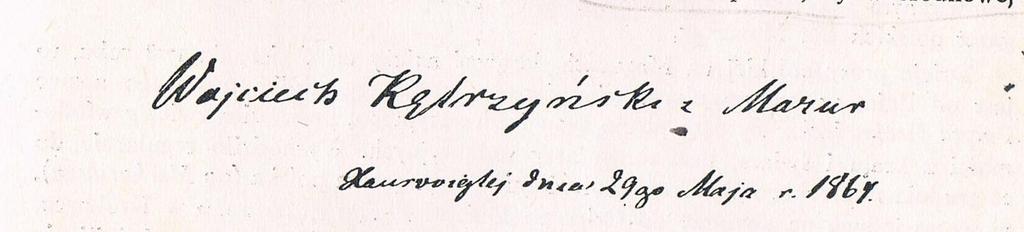 Wojciech Kętrzyński z Mazur
Hausvoigtej dnia 29go Maja r. 1864.